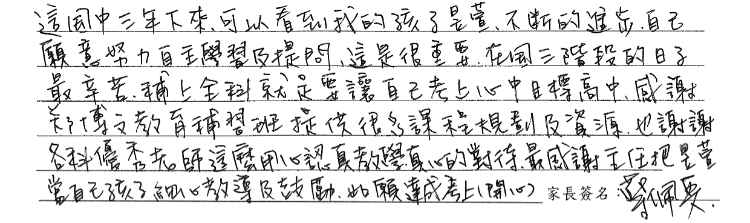 這國中三年下來,可以看到我的孩子昱萱,不斷的進步,自己
願意努力自主學習及提問,這是很重要,在國三階段的日子
最辛苦,補上全科就是要讓自己考上心中目標高中,感謝
博文教育補習班提供很多課程規劃及資源,也謝謝
各科優秀老師這麼用心認真教學真心的對待,最感謝主任把昱萱
當自己孩子細心教導及鼓勵,如願達成考上(開心) 家長簽名: